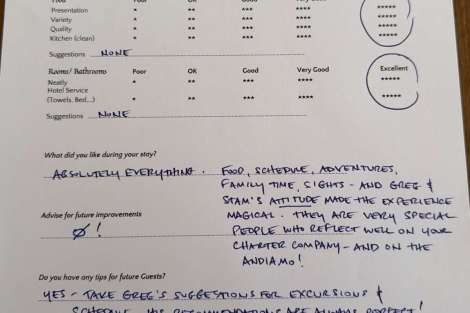 Food Poor OK Good Very Good
Presentation * ** *** **** *****
Variety * ** *** **** *****
Quality * ** *** **** *****
Kitchen (clean) * ** *** **** *****
Suggestions NONE
Rooms/ Bathrooms Poor OK Good Very Good Excellent
Neatly * ** *** **** *****
Hotel Service
(Towels. Bed...) * ** *** **** *****
Suggestions NONE
What did you like during your stay?
ABSOLUTELY EVERYTHING. FOOD, SCHEDULE, ADVENTURES,
FAMILY TIME, SIGHTS - AND GREG &
STAM'S ATTITUDE MADE THE EXPERIENCE
MAGICAL. THEY ARE VERY SPECIAL
PEOPLE WHO REFLECT WELL ON YOUR
CHARTER COMPANY - AND ON THE
ANDIAMO!
Advise for future improvements
Ø!
Do you have any tips for future Guests?
YES - TAKE GREG'S SUGGESTIONS FOR EXCURSIONS &
SCHEDULE. HIS RECOMMENDATIONS ARE ALWAYS PERFECT!